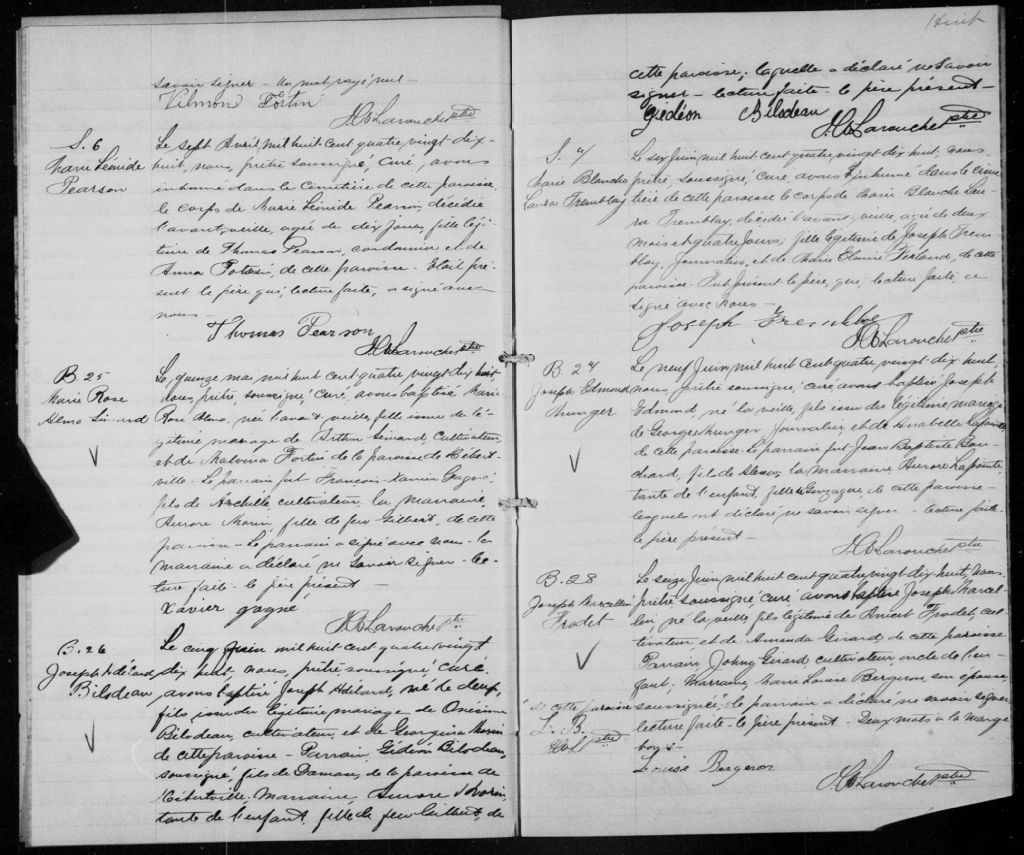 savoir signer - Un mot rayé nul -
Vilmon Fortin
J.O. Larouche ptre
S. 6
Marie Lénide
Pearson
Le sept Avril mil huit cent quatre vingt dix-
huit, nous, prêtre soussigné, curé, avons
inhumé dans le cimetière de cette paroisse,
le corps de Marie Lénide Pearson, décédée
l'avant veille, agée de dix jours, fille légi-
time de Thomas Pearson, cordonnier et de
Anna Potvin, de cette paroisse - Etait pré-
sent le père qui, lecture faite, a signé avec
nous -
Thomas Pearson
Larouche ptre
B. 25
Marie Rose
Alma Simard
Le quinze mai mil huit cent quatre vingt dix huit,
nous, prêtre, soussigné, curé, avons baptisé Marie
Rose Alma, née l'avant veille, fille issue du lé-
gitime mariage de Arthur Simard, cultivateur,
et de Malvina Fortin de la paroisse de Hébert-
ville - Le parrain fut François-Xavier Gagné,
fils de Archille, cultivateur, la marraine,
Aurore Morin, fille de feu Gilbert, de cette
paroisse - Le parrain a signé avec nous - la
marraine a déclaré ne savoir signer - lec-
ture faite - le père présent -
Xavier gagné
Larouche ptre
B. 26
Joseph Adélard
Bilodeau
Le cinq Juin mil huit cent quatre vingt
dix huit, nous, prêtre soussigné, curé,
avons baptisé Joseph Adélard, né le deux,
fils issu du légitime mariage de Onésime
Bilodeau, cultivateur, et de Georgina Morin
de cette paroisse - Parrain, Gédéon Bilodeau,
soussigné, fils de Damase, de la paroisse de
Hébertville, Marraine, Aurore Morin,
tante de l'enfant, fille de feu Gilbert, de
Huit
cette paroisse; laquelle a déclaré ne savoir
signer - lecture faite - le père présent -
Gédéon Bilodeau
Larouche ptre
S. 7
Marie Blanche
Laura Tremblay
Le six Juin mil huit cent quatre vingt dix huit, nous
prêtre, soussigné, curé avons inhumé dans le cime-
tière de cette paroisse le corps de Marie Blanche Lau-
ra Tremblay, décédé l'avant veille, agée de deux
mois et quatre jours; fille légitime de Joseph Trem-
blay, Journalier, et de Marie Ferland, de cette
paroisse - Fut présent le père, qui, lecture faite, a
signé avec nous -
Joseph Tremblay
Larouche ptre
B. 27
Joseph Edmond
Munger
Le neuf Juin mil huit cent quatre vingt dix huit,
nous, prêtre soussigné, curé avons baptisé Joseph
Edmond, né la veille, fils issu du légitime mariage
de George Munger, Journalier et de Anabelle Lapointe
de cette paroisse - Le parrain fut Jean Baptiste Bou-
chard, fils de Alexis; la marraine Aurore Lapointe,
tante de l'enfant, fille de Gonzague, de cette paroisse -
lesquels ont déclaré ne savoir signer - lecture faite -
le père présent -
Larouche ptre
B. 28
Joseph Marcellin
Frodet
Le seize Juin mil huit cent quatre vingt dix huit, nous
prêtre soussigné, curé avons baptisé Joseph Marcel-
lin, né la veille fils légitime de Frodet, cul-
tivateur, et de Amanda Girard, de cette paroisse
Parrain, Johny Girard, cultivateur, oncle de l'en-
fant; Marraine, Marie Louise Bergeron, son épouse,
de cette paroisse
L. B.
ptre
soussignée; le parrain a déclaré ne savoir signer
lecture faite - le père présent - Deux mots à la marge
bons -
Louise Bergeron
Larouche ptre